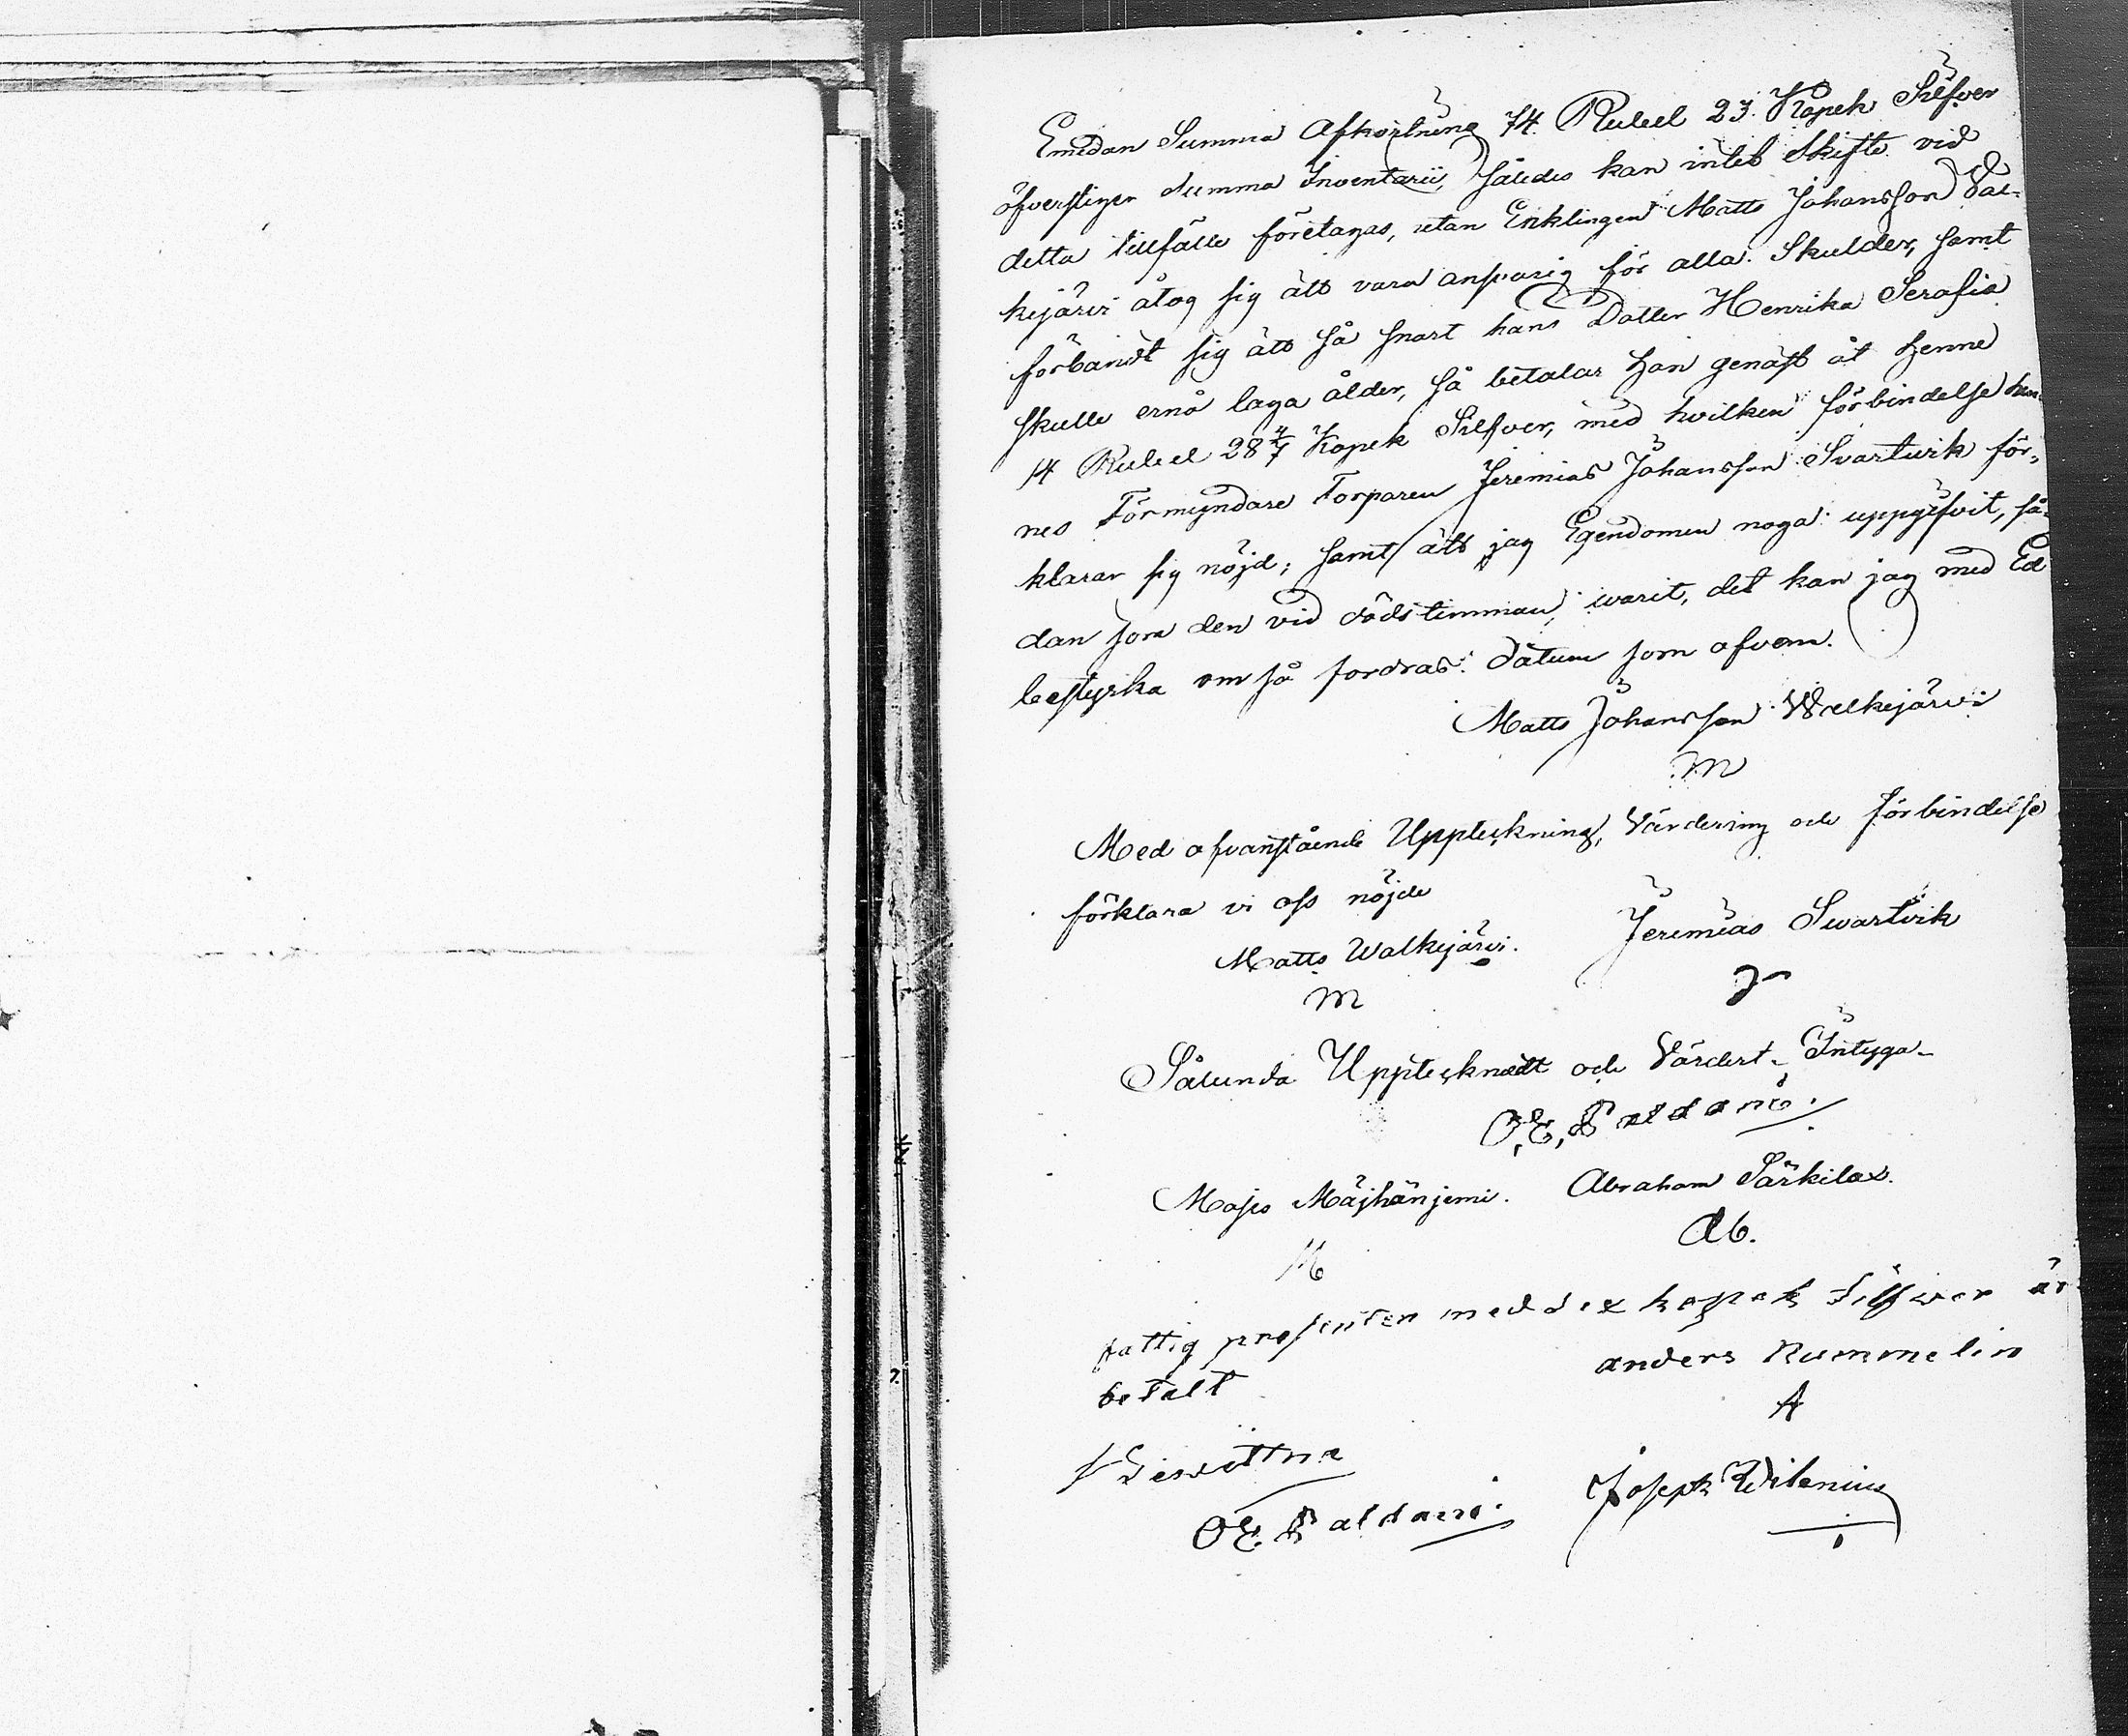 Emedan Summa Afkortning 74. Rubel 23. Kopek Silfver
öfverstiger Summa Inventarii, således kan intet Skifte vid
detta tillfälle företagas, utan Enklingen Matts Johansson Val-
kejärvi åtog sig ätt vara ansvarig för alla Skulder, samt
förbandt sig ätt så snart hans Dotter Henrika Serafia
skulle ernå laga ålder, så betalar han genast åt henne
14 Rubel 28 4/7 Kopek Silfver, med hvilken förbindelse hen-
nes Förmyndare Torparen Jeremias Johansson Svartvik för-
klarar sig nöjd; samt ätt jag Egendomen noga uppgifvit, så-
dan som den vid dödstimman warit, det kan jag med Ed
bestyrka om så fordras. Datum som ofvan.
Matts Johansson Walkejärvi
M
Med ofvanstående Uppteckning, Värdering och förbindelse
förklara vi oss nöjde
Matts Walkejärvi. Jeremias Swartvik
M J
Sålunda Upptecknadt och Värdert, Intyga
O. E. Paldani.
Abraham Särkilax.
M Ab.
fattig prosenten med sex kopek Silfwer är
betalt anders Rummelin
A
Wittna
O E. Paldani. Joseph Wilenius